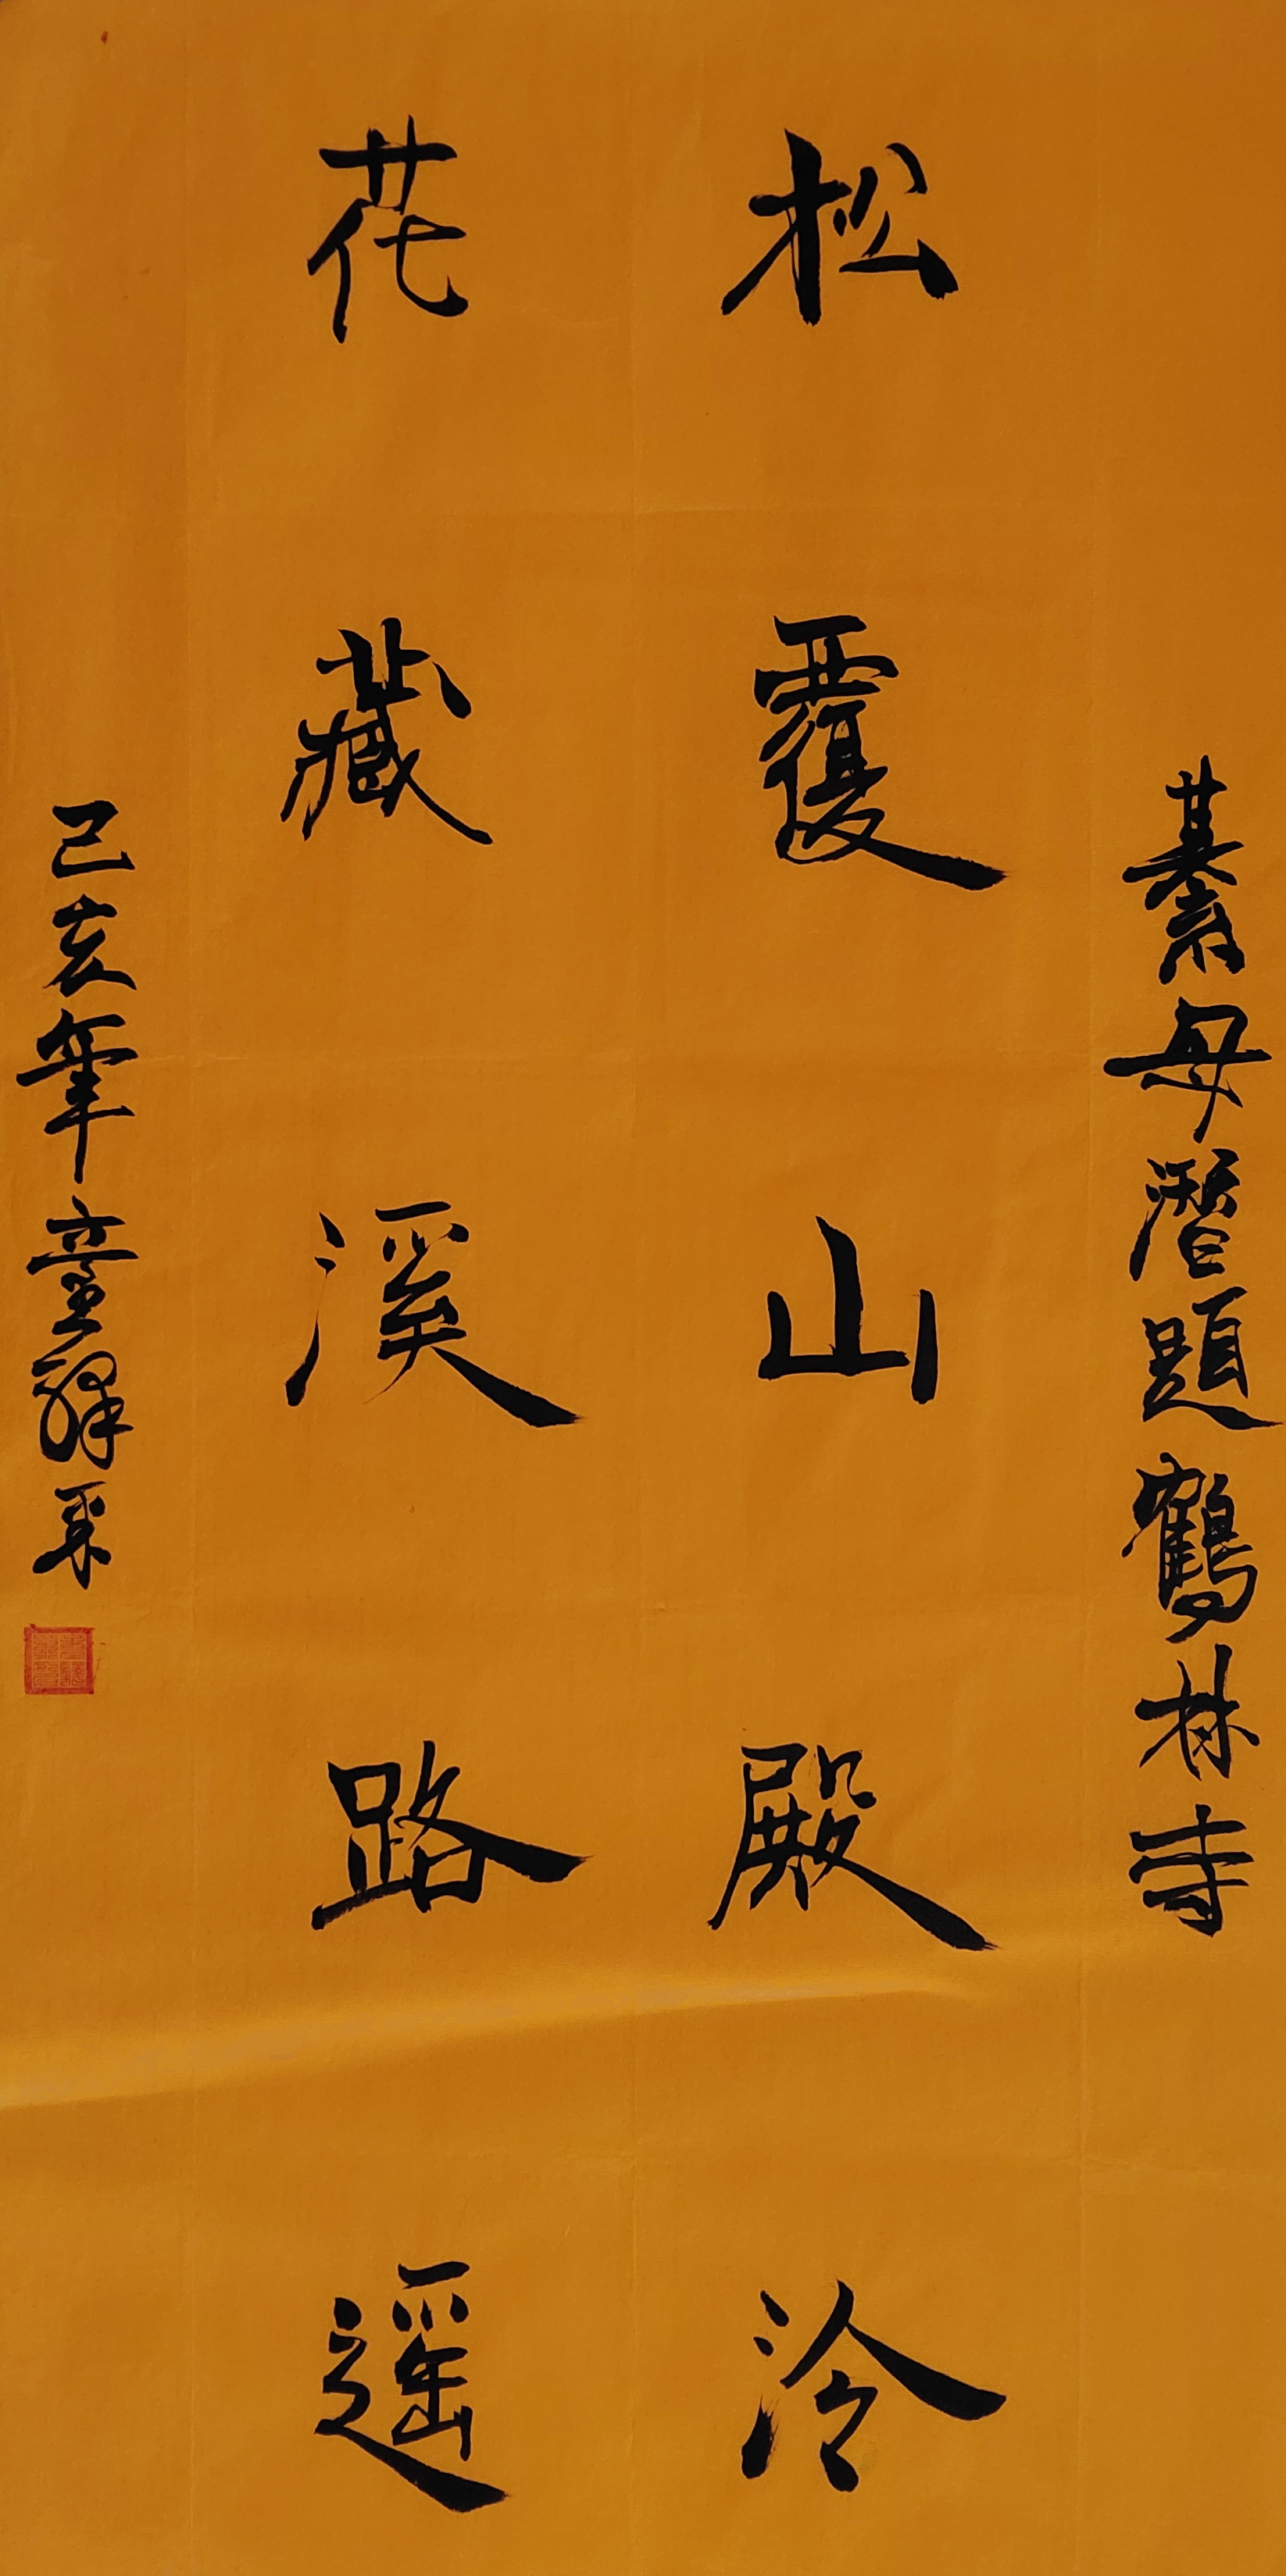 綦毋潛題鶴林寺
松覆山殿冷
花藏溪路遥
己亥年童譯采